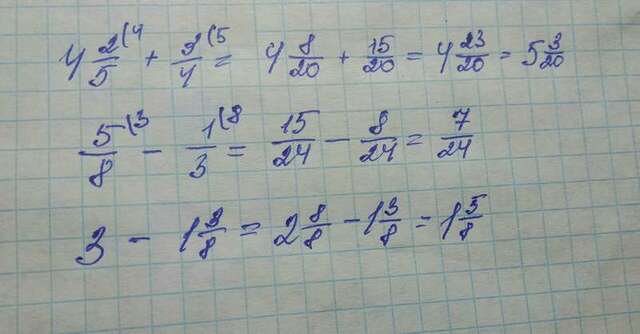 4 2/5 (4 + 3/4 (5 = 4 8/20 + 15/20 = 4 23/20 = 5 3/20
5/8 (3 - 1/3 (8 = 15/24 - 8/24 = 7/24
3 - 1 3/8 = 2 8/8 - 1 3/8 = 1 5/8